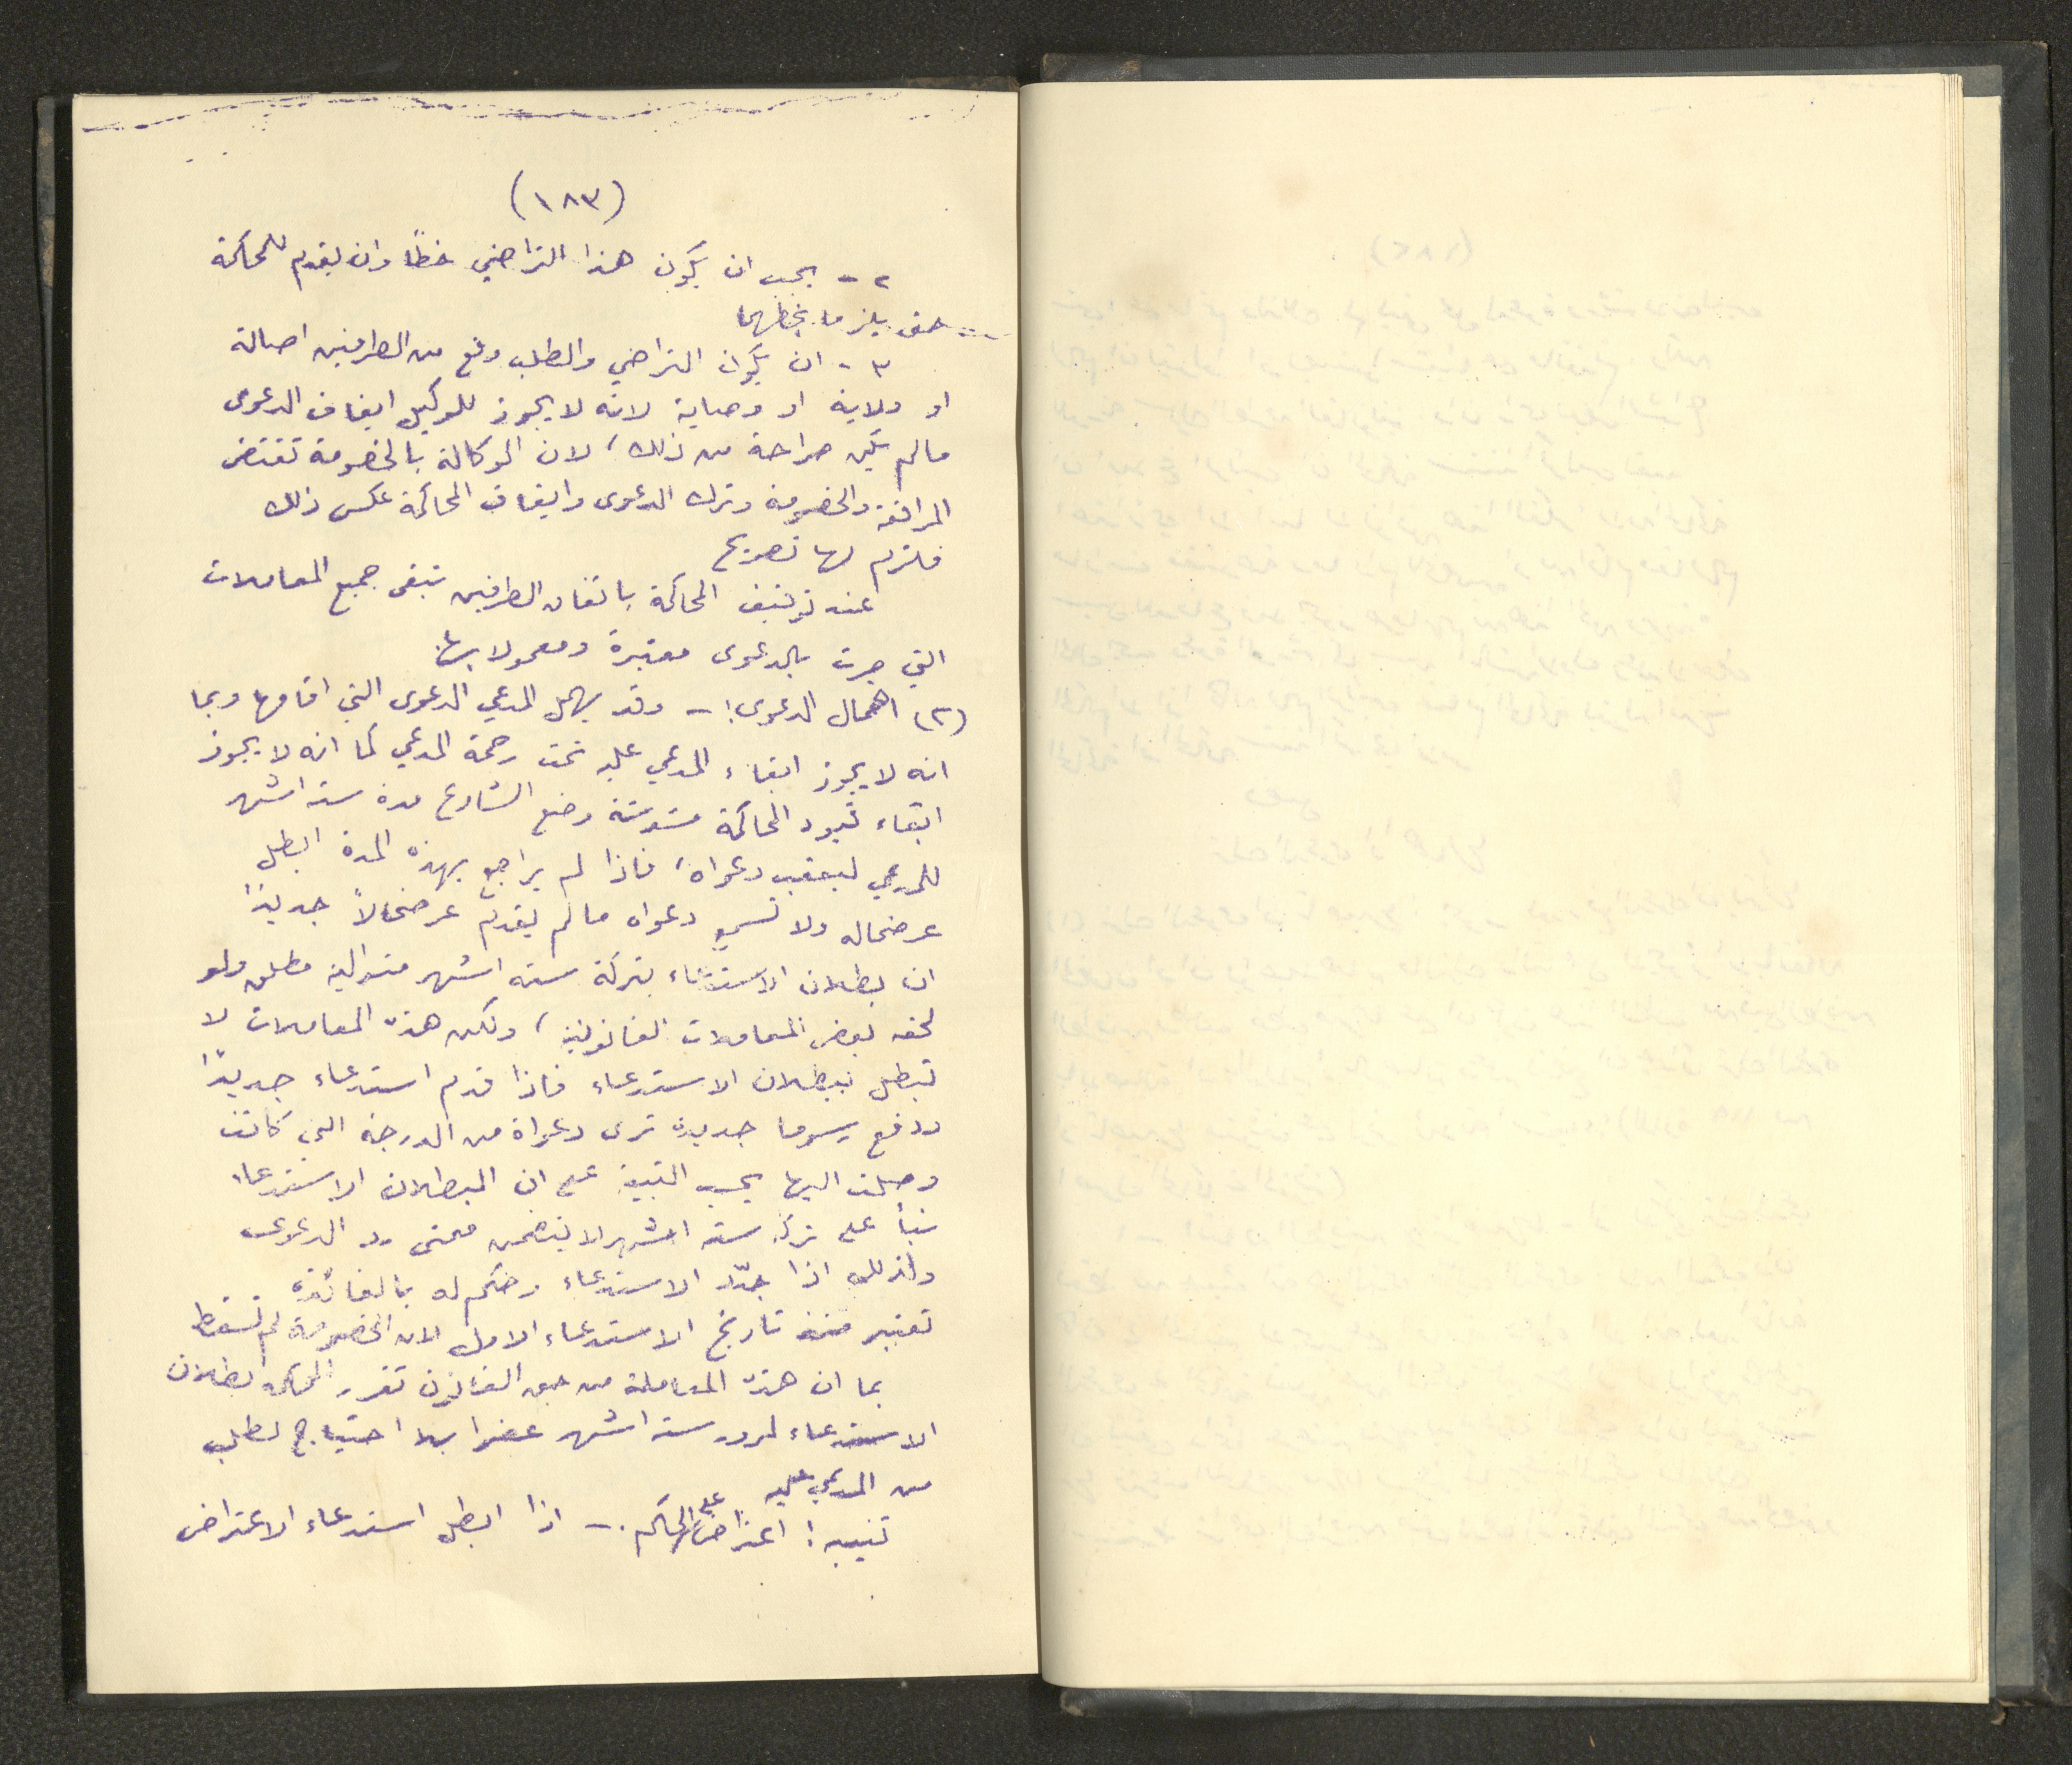 (١٨٣)
٢ - يجب ان يكون هذا التراضي خطاً وان يقدم للمحكمة
حتى يلزما بخطهما
٣ - ان يكون التراضي والطلب وقع من الطرفين اصالة
او ولاية او وصاية لانه لا يجوز للوكيل ايقاف الدعوى
مالم يكن صراحة من ذلك، لان الوكالة بالخصومة تقتضى
المرافعة والخصومة وترك الدعوى وايقاف المحاكمة عكس ذلك
فلزم لها تصريح
عند توقيف المحاكمة باتفاق الطرفين تبقى جميع المعاملات
التي جرت بالدعوى معتبرة ومعمولا بها
(٢) اهمال الدعوى: - وقد يهمل المدعي الدعوى التي اقامها وبما
انه لا يجوز ابقاء المدعي عليه تحت رحمة المدعي كما انه لا يجوز
ابقاء قيود المحاكمة مشوشة وضع الشارع مدة ستة اشهر
للمدعي ليعقب دعواه، فاذا لم يراجع بهذه المدة ابطل
عرضحاله ولا تسمع دعواه مالم يقدم عرضحالاً جديداً
ان بطلان الاستدعاء بتركة ستة اشهر متوالية مطلق ولو
لحقه بعض المعاملات القانونية، ولكن هذه المعاملات لا
تبطل ببطلان الاستدعاء فاذا قدم استدعاء جديدًا
ودفع رسوما جديدة ترى دعواه من الدرجة التي كانت
وصلت اليها يجب التنبيه على ان المبطلان الاستدعاء
بناً على ترك ستة اشهر لا يتضمن معنى رد الدعوى
ولذلك اذا جدّد الاستدعاء وحكم له بالفائدة
تعتبر منذ تاريخ الاستدعاء الاول لان الخصومة لم تسقط
بما ان هذه المعاملة من حق القانون تقرر المحكمة بطلان
الاستدعاء لمرور ستة اشهر عفوا بلا احتياج لطلب
من المدعي عليه
تنبيه: اعتراض على الحكم. - اذا ابطل استدعاء الاعتراض